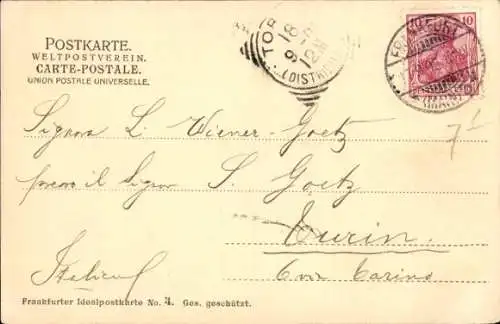 POSTKARTE.
WELTPOSTVEREIN.
CARTE-POSTALE.
UNION POSTALE UNIVERSELLE.
TOR
9 - 18
12M
(DISTRIB
10
FRANKFURT
Signora L. Wiener-Goetz
presso il Signor S. Goetz
Turin.
6 via Carino
Italien
Frankfurter Idealpostkarte No. 3. Ges. geschützt.